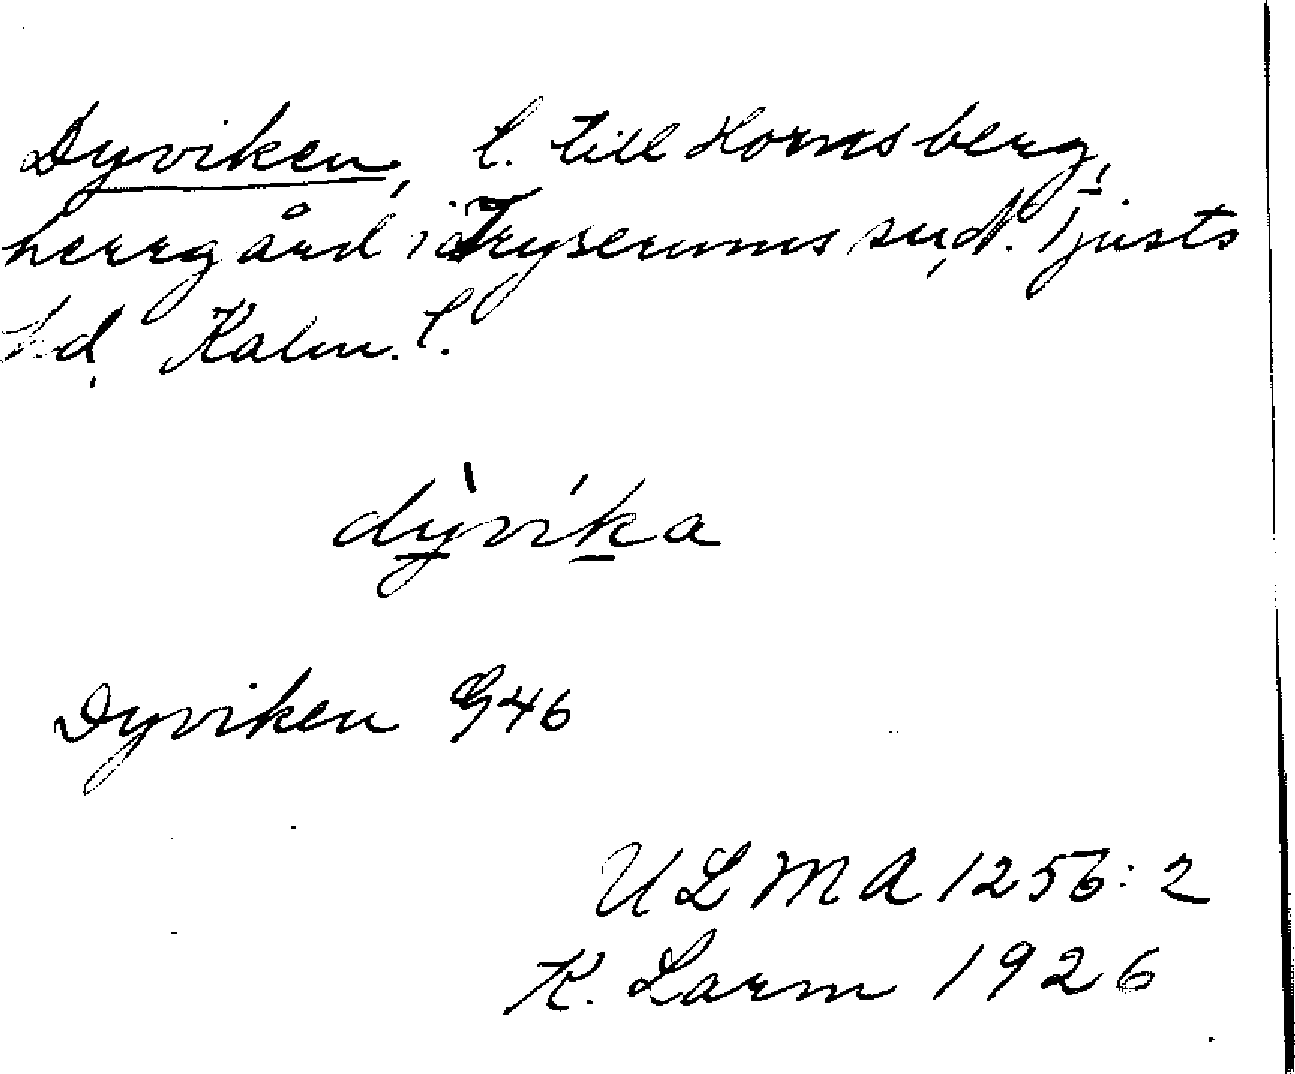 Dyviken, l. till Hornsberg,
herrgård i Tryserums sn, N. Tjusts
hd, Kalm. l.
dỳ̠vík̠a
Dyviken G46
ULMA 1256:2
K. Larm 1926